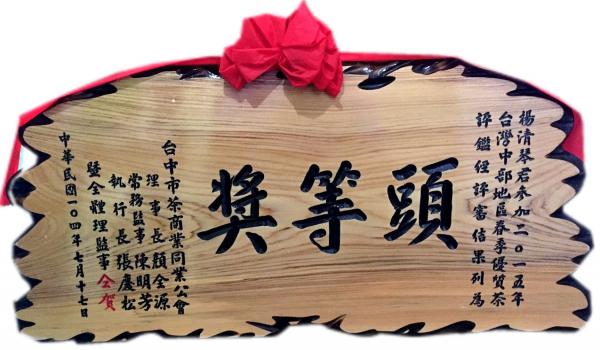 楊清琴君參加二〇一五年
台灣中部地區春季優質茶
評鑑經評審結果列為
頭等獎
台中市茶商業同業公會
理事長顏全源
常務監事陳明芳
執行長張慶松
暨全體理監事仝賀
中華民國一〇四年七月十七日